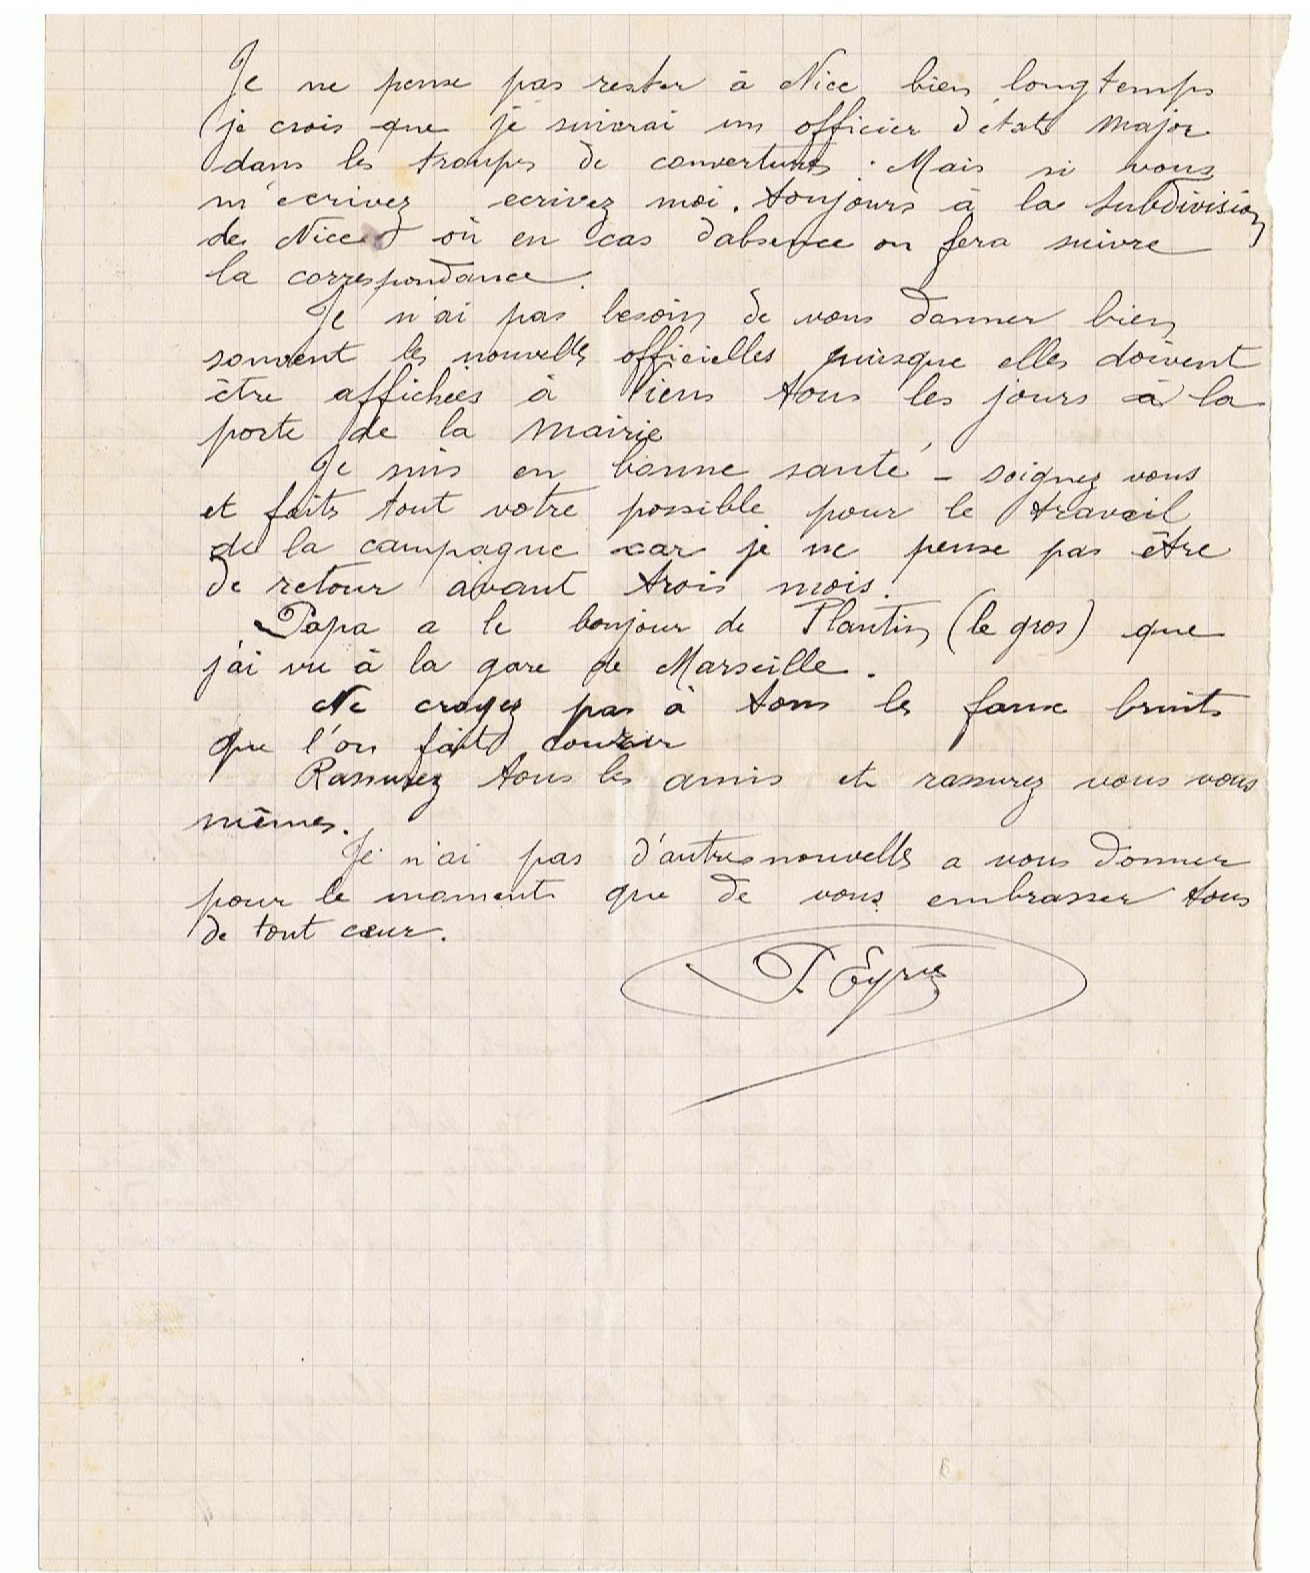 Je ne pense pas rester à Nice bien longtemps
(je crois que je suivrai un officier d'état major
dans les troupes de couverture. Mais si vous
m'ecrivez ecrivez moi toujours à la subdivision
de Nice d'où en cas d'absence on fera suivre
la correspondance.
Je n'ai pas besoin de vous donner bien
souvent les nouvelles officielles puisque elles doivent
être affichées à Viens tous les jours à la
porte de la mairie
Je suis en bonne santé - soignez vous
et faits tout votre possible pour le travail
de la campagne car je ne pense pas être
de retour avant trois mois.
Papa a le bonjour de Plantin (le gros) que
j'ai vu à la gare de Marseille.
Ne croyez pas à tous les faux bruits
que l'on fait courir
Rassurez tous les amis et rassurez vous vous
mêmes.
Je n'ai pas d'autres nouvelles a vous donner
pour le moment que de vous embrasser tous
de tout cœur.
P. Eyriès